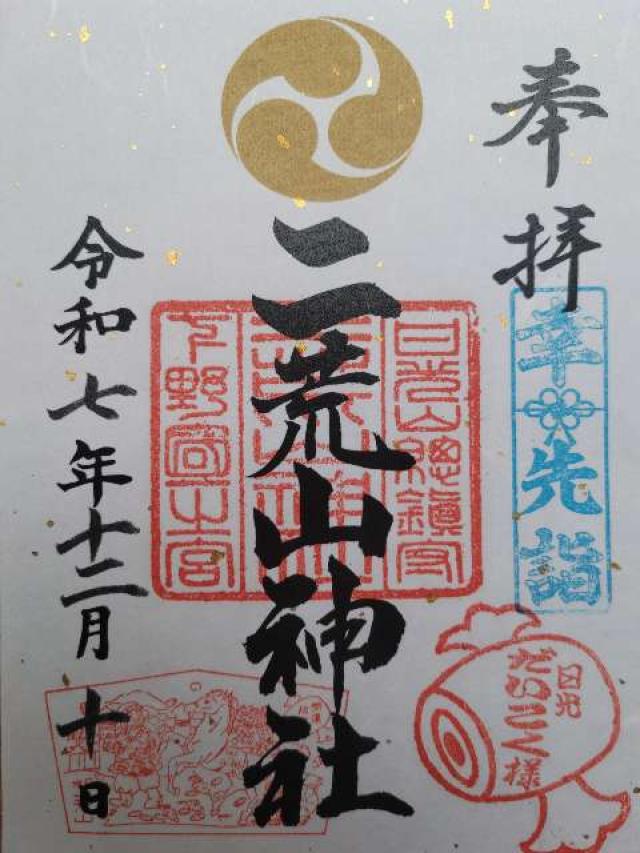 奉拝
幸先詣
日光だいこく様
日光山總鎮守
二荒山神社
下野国一之宮
令和七年十二月十日